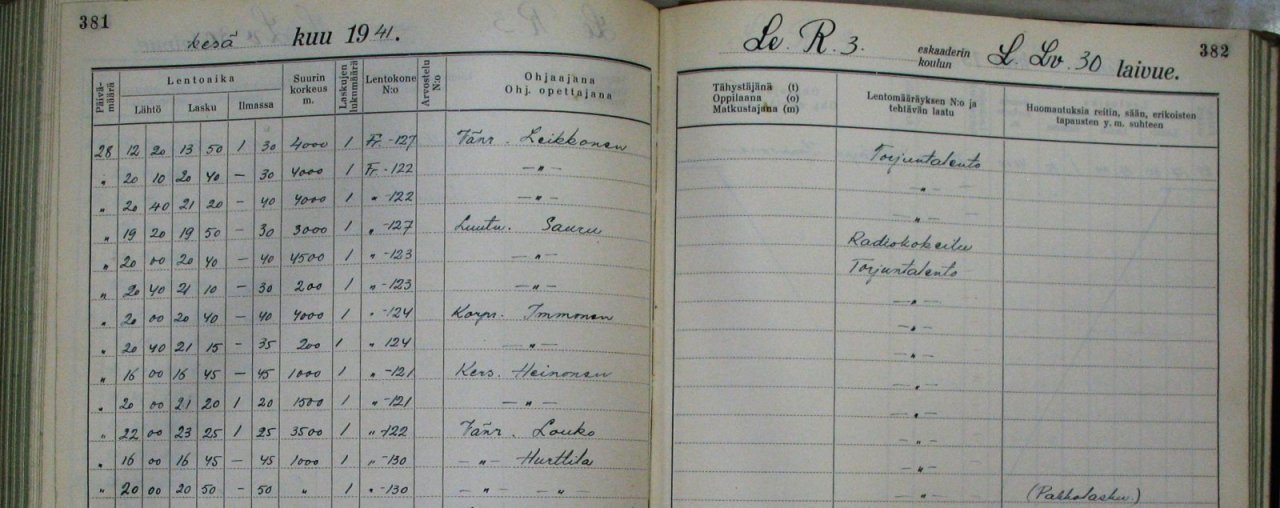 381
kesä kuu 1941.
Päivä-määrä Lentoaika Suurin korkeus m. Laskujen lukumäärä Lentokone N:o Arvostelu N:o Ohjaajana Ohj. opettajana
Lähtö Lasku Ilmassa
28 12 20 13 50 1 30 4000 1 Fr. -127 Vänr. Leikkonen
" 20 10 20 40 — 30 4000 1 Fr. -122 — " —
" 20 40 21 20 - 40 4000 1 " -122 — " —
" 19 20 19 50 - 30 3000 1 " -127 Luutn. Sauru
" 20 00 20 40 - 40 4500 1 " -123 — " —
" 20 40 21 10 - 30 200 1 " -123 — " —
" 20 00 20 40 - 40 4000 1 " -124 Korpr. Immonen
" 20 40 21 15 - 35 200 1 " 124 — " —
" 16 00 16 45 — 45 1000 1 " -121 Kers. Heinonen
" 20 00 21 20 1 20 1500 1 " -121 — " —
" 22 00 23 25 1 25 3500 1 " -122 Vänr. Louko
" 16 00 16 45 — 45 1000 1 " -130 — " — Hurttila
" 20 00 20 50 - 50 " 1 " -130 — " — — " —
Le. R. 3. eskaaderin koulun L. Lv. 30 laivue. 382
Tähystäjänä (t)
Oppilaana (o)
Matkustajana (m)
Lentomääräyksen N:o ja
tehtävän laatu
Huomautuksia reitin, sään, erikoisten
tapausten y. m. suhteen
Torjuntalento
— " —
— " —
Radiokokeilu
Torjuntalento
— " —
— " —
— " —
— " —
— " —
— " —
— " —
— " — (Pakkolasku.)